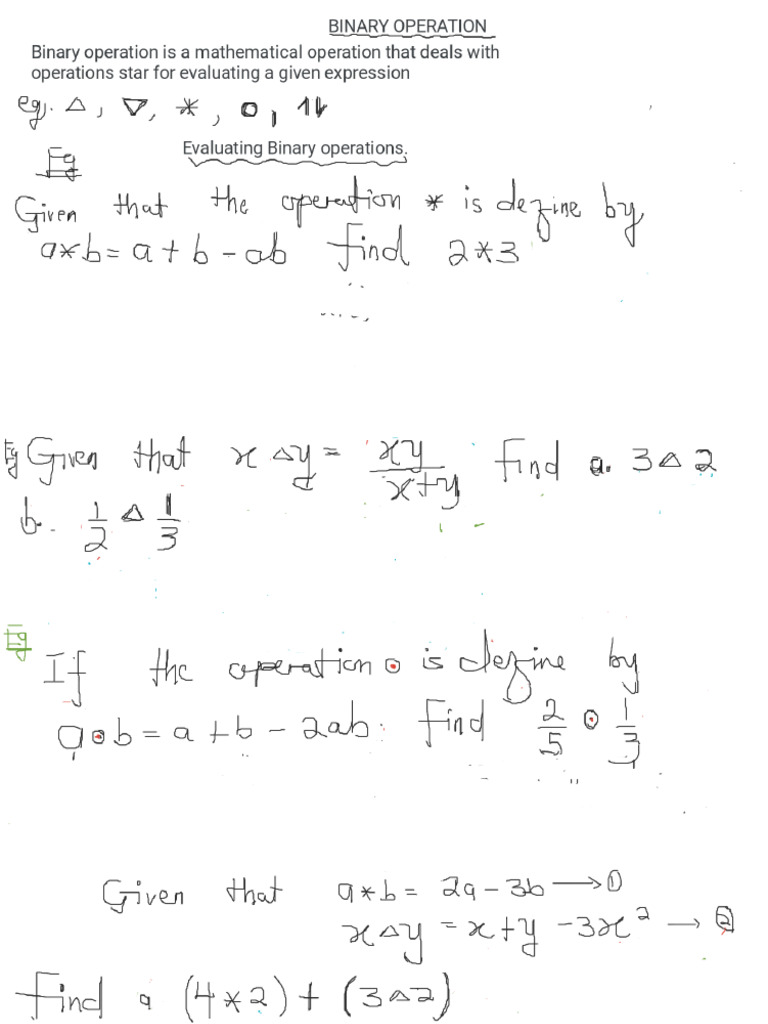 BINARY OPERATION
Binary operation is a mathematical operation that deals with
operations star for evaluating a given expression
eg. △, ▽, *, o,
Evaluating Binary operations.
Eg
Given that the operation * is dezine by
a*b = a + b - ab find 2*3
Eg Given that x △ y = xy/x+y find a. 3△2
b. 1/2 △ 1/3
Eg
If the operation ⊙ is dezine by
a⊙b = a + b - 2ab. find 2/5 ⊙ 1/3
Given that a*b = 2a - 3b → ①
x△y = x+y - 3x² → ②
find a (4*2) + (3△2)